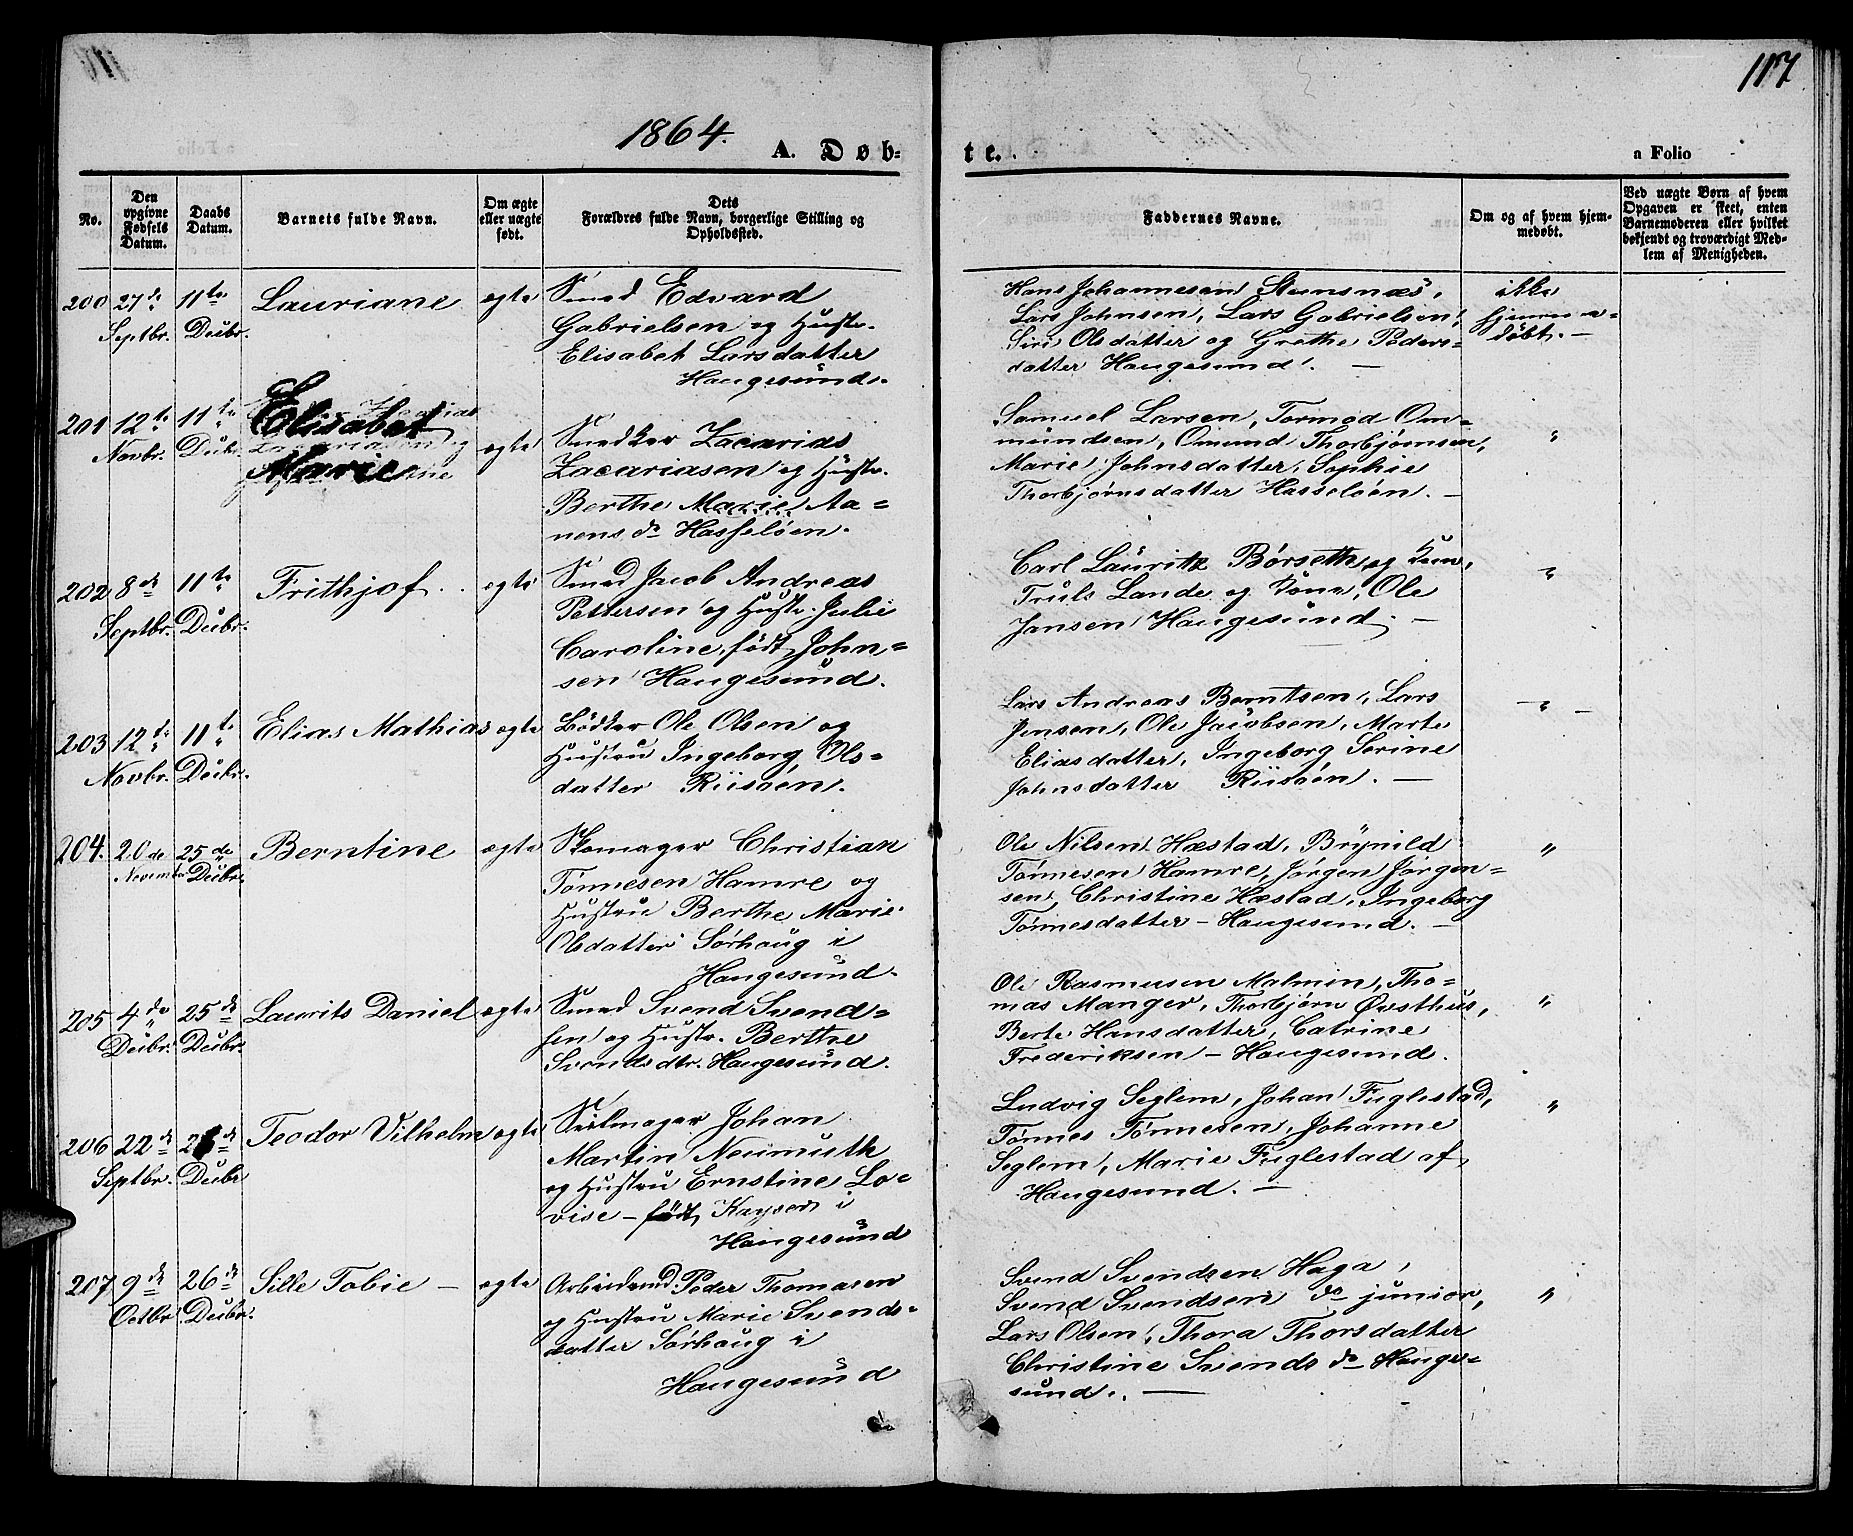 117
1864.
A. Døb-
te.
a Folio
No.
Den opgivne Fødsels Datum.
Daabs Datum.
Barnets fulde Navn.
Om ægte eller uægte født.
Dets Forældres fulde Navn, borgerlige Stilling og Opholdssted.
Faddernes Navne.
Om og af hvem hjemmedøbt.
Ved uægte Børn af hvem Opgaven er skeet, enten Barnemoderen eller hvilket bekjendt og troværdigt Medlem af Menigheden.
200 27de Septbr. 11te Decbr. Lauriane ægte
Smed Edvard
Gabrielsen og Hustr.
Elisabet Larsdatter
Haugesund.
Hans Johannesen
Lars Johnsen, Lars Gabrielsen,
Siri Olsdatter og Grethe Peders-
datter Haugesund. —
ikke
hjemme-
døbt. —
201 12te Novbr. 11te Decbr. Elisabet
Marie ægte
Snedker Zacarias
Zacariasen og Hustr.
Berthe Marie Aa=
nens dr Hasseløen.
Samuel Larsen, Tormod Om-
mundsen, Omund Thorbjørnsen,
Marie Johnsdatter, Sophie
Thorbjørnsdatter Hasseløen. —
"
202 8de Septbr. 11te Decbr. Frithjof . . ægte
Smed Jacob Andreas
Pettersen og Hustr. Julie
Caroline, født John=
sen Haugesund.
Carl Lauritz Børseth, og
Truls Lande og Kone, Ole
Jansen Haugesund. —
"
203 12te Novbr. 11te Decbr. Elias Mathias ægte
Bødker Ole Olsen og
Hustru Ingeborg Ols=
datter Riisøen.
Lars Andreas Berntsen, Lars
Jensen, Ole Jacobsen, Marte
Eliasdatter, Ingeborg Serine
Johnsdatter Riisøen. —
— " —
204. 20de November 25de Decbr. Berntine ægte
Skomager Christian
Tønnesen Hamre og
Hustru Berthe Marie
Olsdatter Sørhaug i
Haugesund.
Ole Nilsen Hæstad, Brynild
Tønnesen Hamre, Jørgen Jørgen=
sen, Christine Hæstad, Ingeborg
Tønnesdatter — Haugesund. —
"
205 4de Decbr. 25de Decbr. Laurits Daniel ægte
Smed Svend Svend=
sen og Hustr. Berthe
Svendsdtr. Haugesund.
Ole Rasmusen Malmin, Tho=
mas Manger, Thorbjørn Øvsthus,
Berte Hansdatter, Catrine
Frederiksen — Haugesund.
"
206 22de Septbr. de Decbr Teodor Vilhelm ægte
Seilmager Johan
Martin Neumuth
og Hustru Ernstine Lo=
vise — født Kayser i
Haugesund
Ludvig Seglem, Johan Fuglestad,
Tønnes Tønnesen, Johanne
Seglem, Marie Fuglestad af
Haugesund. —
"
207 9de Octbr 26de Decbr. Sille Tobie — ægte
Arbeidsmd. Peder Thomasen
og Hustru Marie Svends=
datter Sørhaug i
Haugesund
Svend Svendsen Haga,
Svend Svendsen do junior,
Lars Olsen, Thora Thorsdatter
Christine Svends dr Hauge=
sund. —
"